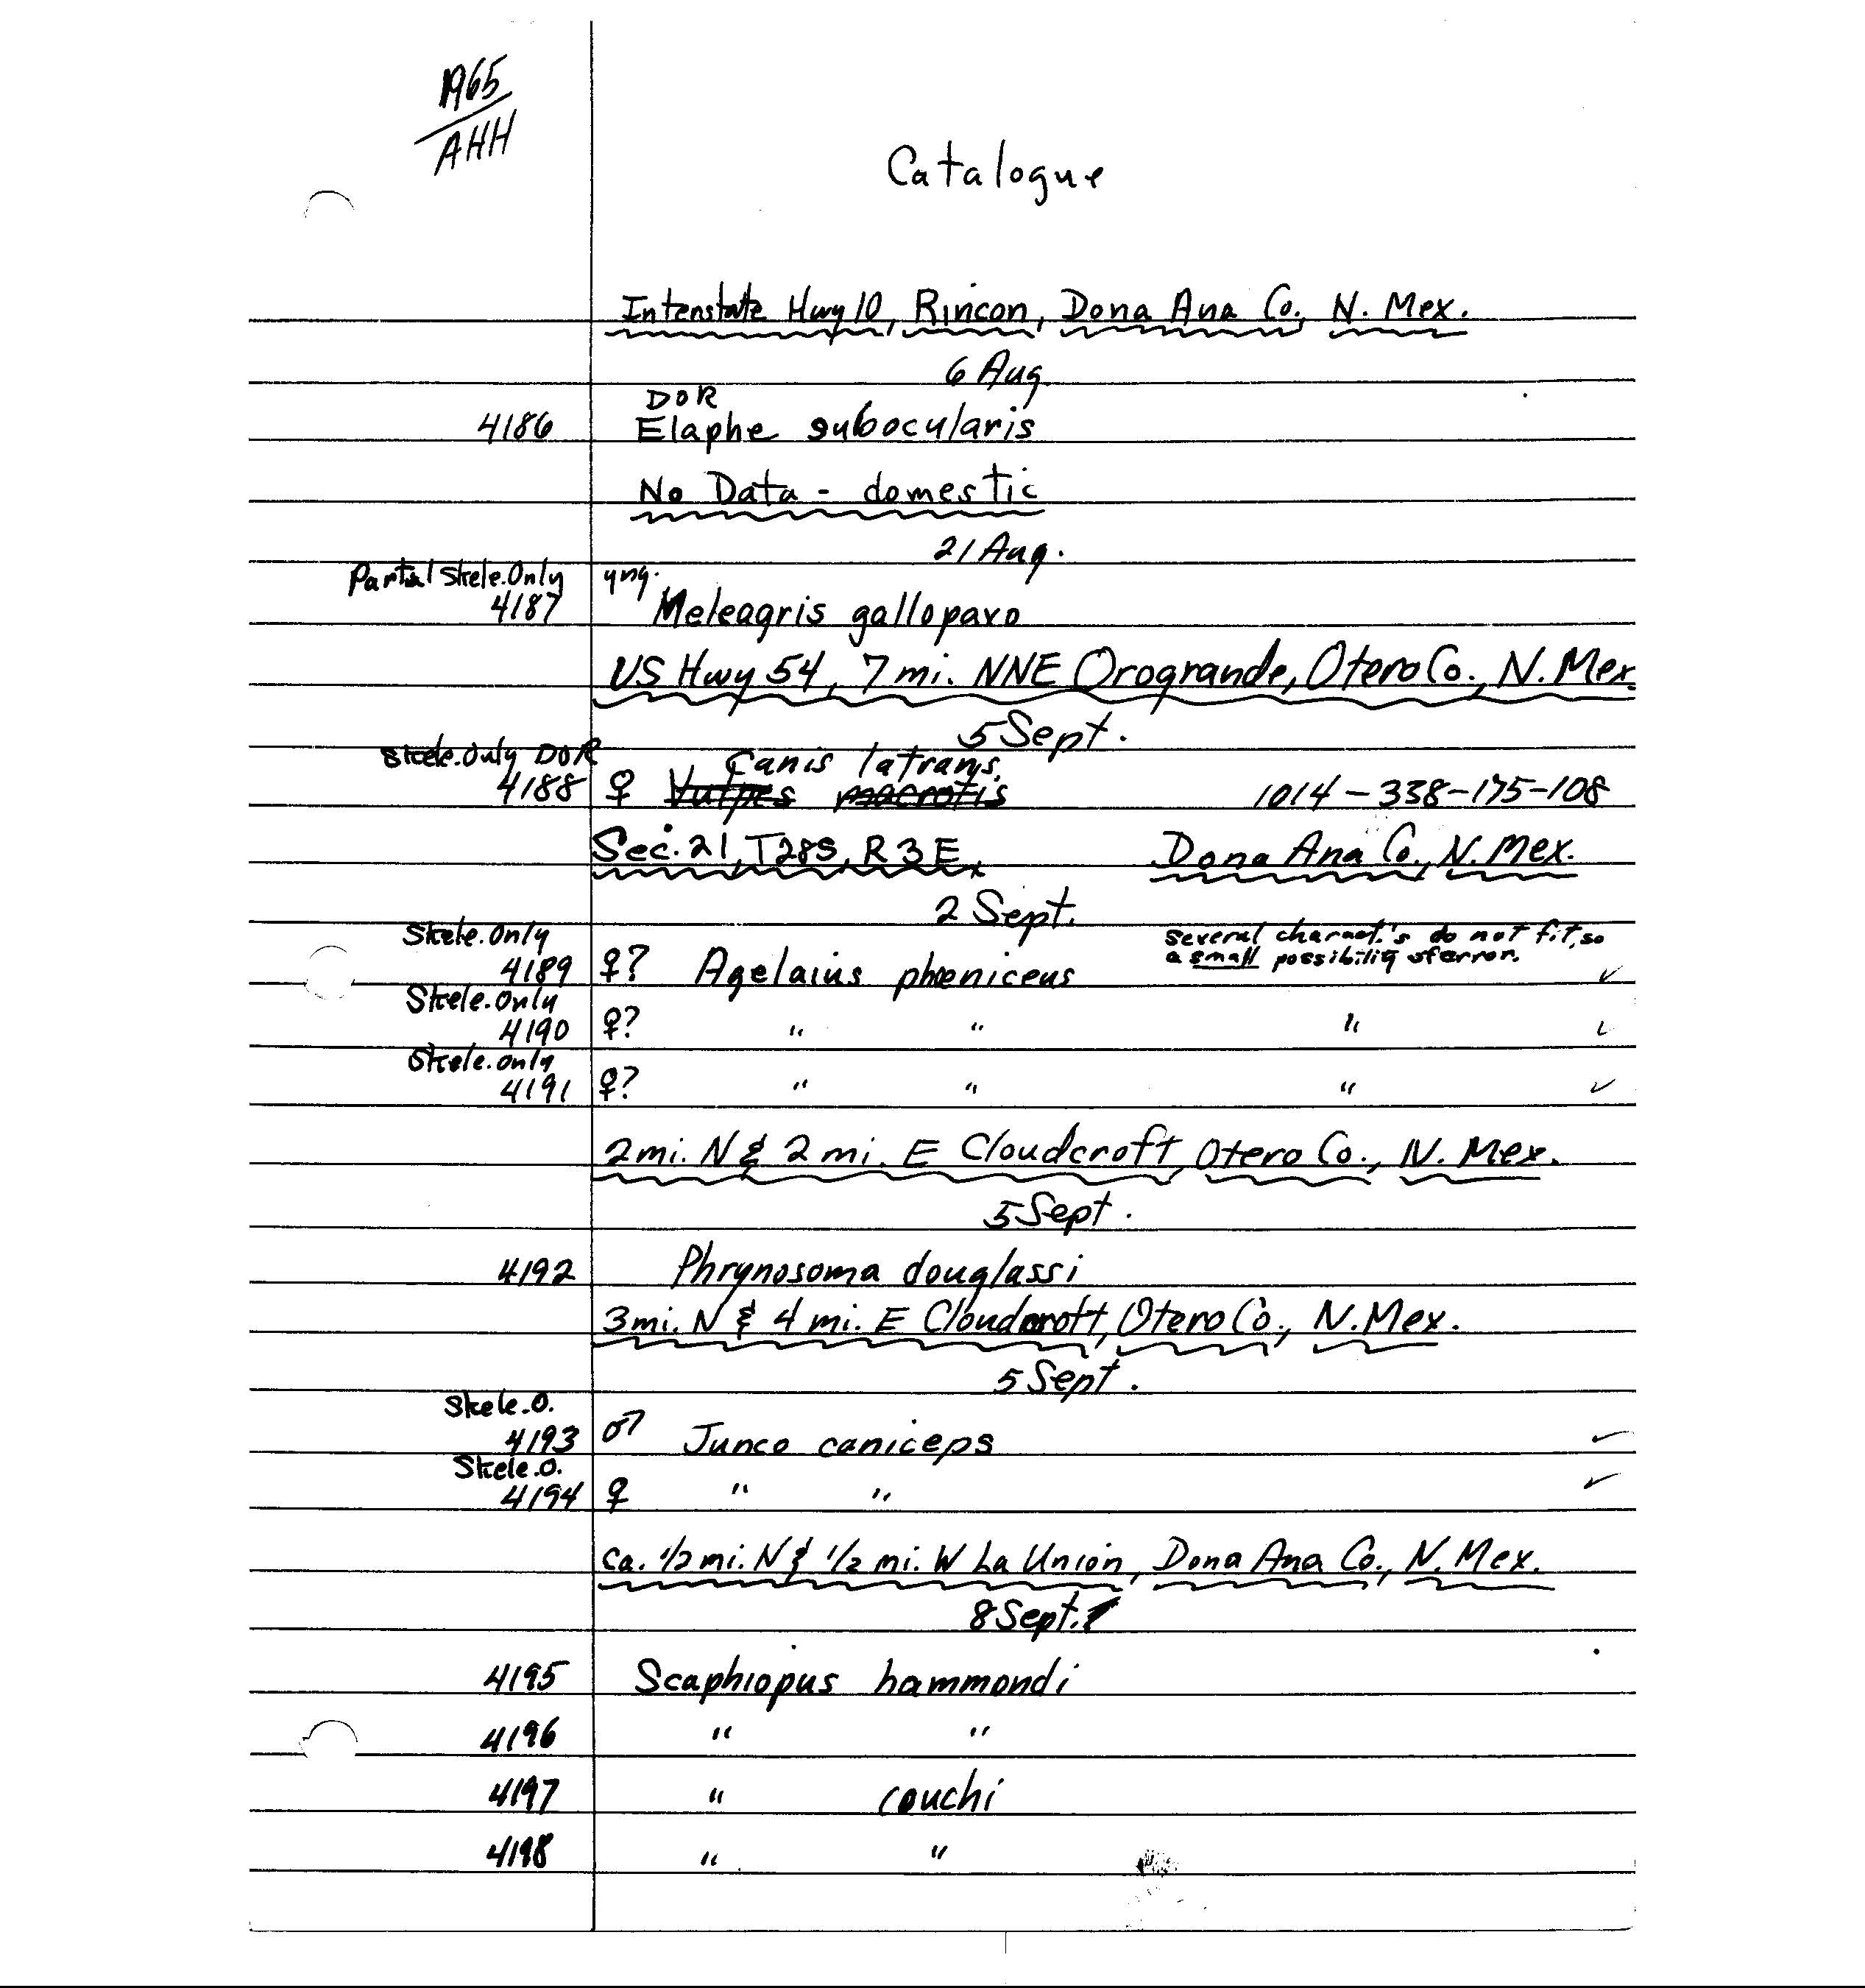 1965
AHH
Catalogue
Interstate Hwy 10, Rincon, Dona Ana Co., N. Mex.
6 Aug.
DOR
4186 Elaphe subocularis
No Data - domestic
21 Aug.
Partial Skele. Only yng.
4187 Meleagris gallopavo
US Hwy 54, 7 mi. NNE Orogrande, Otero Co., N. Mex.
5 Sept.
Skele. Only DOR Canis latrans.
4188 ♀ Vulpes macrotis 1014-338-175-108
Sec. 21, T28S, R3E, Dona Ana Co., N. Mex.
2 Sept.
Skele. Only several charact.'s do not fit, so
4189 ♀? Agelaius phoeniceus a small possibility of error. ✓
Skele. Only
4190 ♀? " " " ✓
Skele. only
4191 ♀? " " " ✓
2 mi. N & 2 mi. E Cloudcroft, Otero Co., N. Mex.
5 Sept.
4192 Phrynosoma douglassi
3 mi. N & 4 mi. E Cloudcroft, Otero Co., N. Mex.
5 Sept.
Skele. O.
4193 ♂ Junco caniceps ✓
Skele. O.
4194 ♀ " " ✓
ca. 1/2 mi. N & 1/2 mi. W La Union, Dona Ana Co., N. Mex.
8 Sept.
4195 Scaphiopus hammondi
4196 " "
4197 " couchi
4198 " "